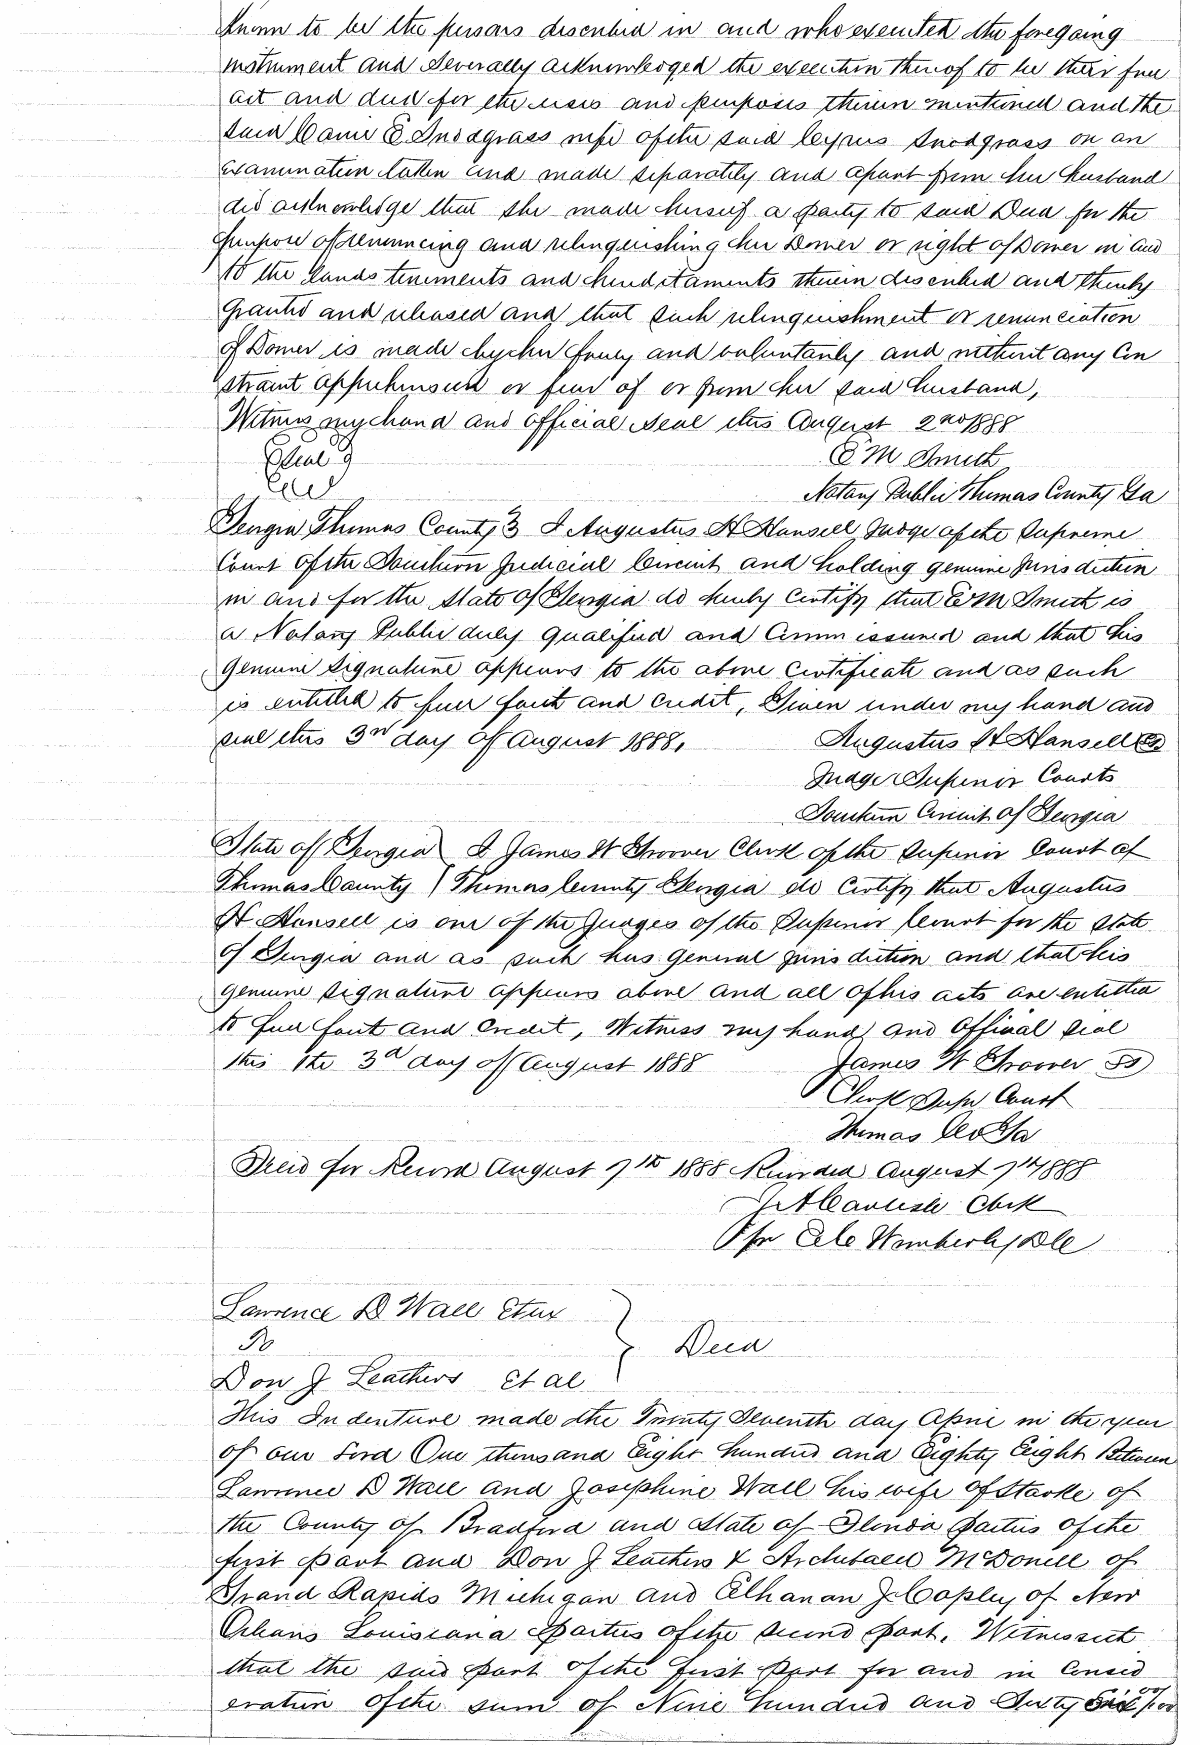 known to be the persons described in and who executed the foregoing
instrument and severally acknowledged the execution thereof to be their free
act and deed for the uses and purposes therein mentioned and the
said Carrie E Snodgrass wife of the said Cyrus Snodgrass on an
examination taken and made separately and apart from her husband
did acknowledge that she made herself a party to said Deed for the
purpose of renouncing and relinquishing her Dower or right of Dower in and
to the lands tenements and hereditaments therein described and thereby
granted and released and that such relinquishment or renunciation
of Dower is made by her freely and voluntarily and without any Con
straint apprehension or fear of or from her said husband,
Witness my hand and official seal this August 2nd 1888
Seal
E M Smith
Notary Public Thomas County Ga
Georgia Thomas County } I Augustus H Hansell Judge of the Supreme
Court of the Southern Judicial Circuit and holding genuine jurisdiction
in and for the State of Georgia do hereby certify that E M Smith is
a Notary Public duly qualified and Commissioned and that his
genuine signature appears to the above certificate and as such
is entitled to full faith and credit, Given under my hand and
seal this 3rd day of August 1888.
Augustus H Hansell
Judge Superior Courts
Southern Circuit of Georgia
State of Georgia ) I James W Groover Clerk of the Superior Court of
Thomas County ( Thomas County Georgia do Certify that Augustus
H Hansell is one of the Judges of the Superior Court for the State
of Georgia and as such has general jurisdiction and that his
genuine signature appears above and all of his acts are entitled
to full faith and Credit, Witness my hand and Official seal
this the 3d day of August 1888
James W Groover
Clerk Supr Court
Thomas Co Ga
Filed for Record August 7th 1888 Recorded August 7th 1888
Clerk
Per Wimberly DC
Lawrence D Wall Etux
To
} Deed
Don J Leathers Et al
This Indenture made the Twenty Seventh day April in the year
of our Lord One thousand Eight hundred and Eighty Eight Between
Lawrence D Wall and Josephine Wall his wife of Starke of
the County of Bradford and State of Florida parties of the
first part and Don J Leathers & Archibald McDonell of
Grand Rapids Michigan and Elhanan J Copley of New
Orleans Louisiana parties of the second part, Witnesseth
that the said part of the first part for and in Consid
eration of the sum of Nine hundred and Sixty Six 00/100